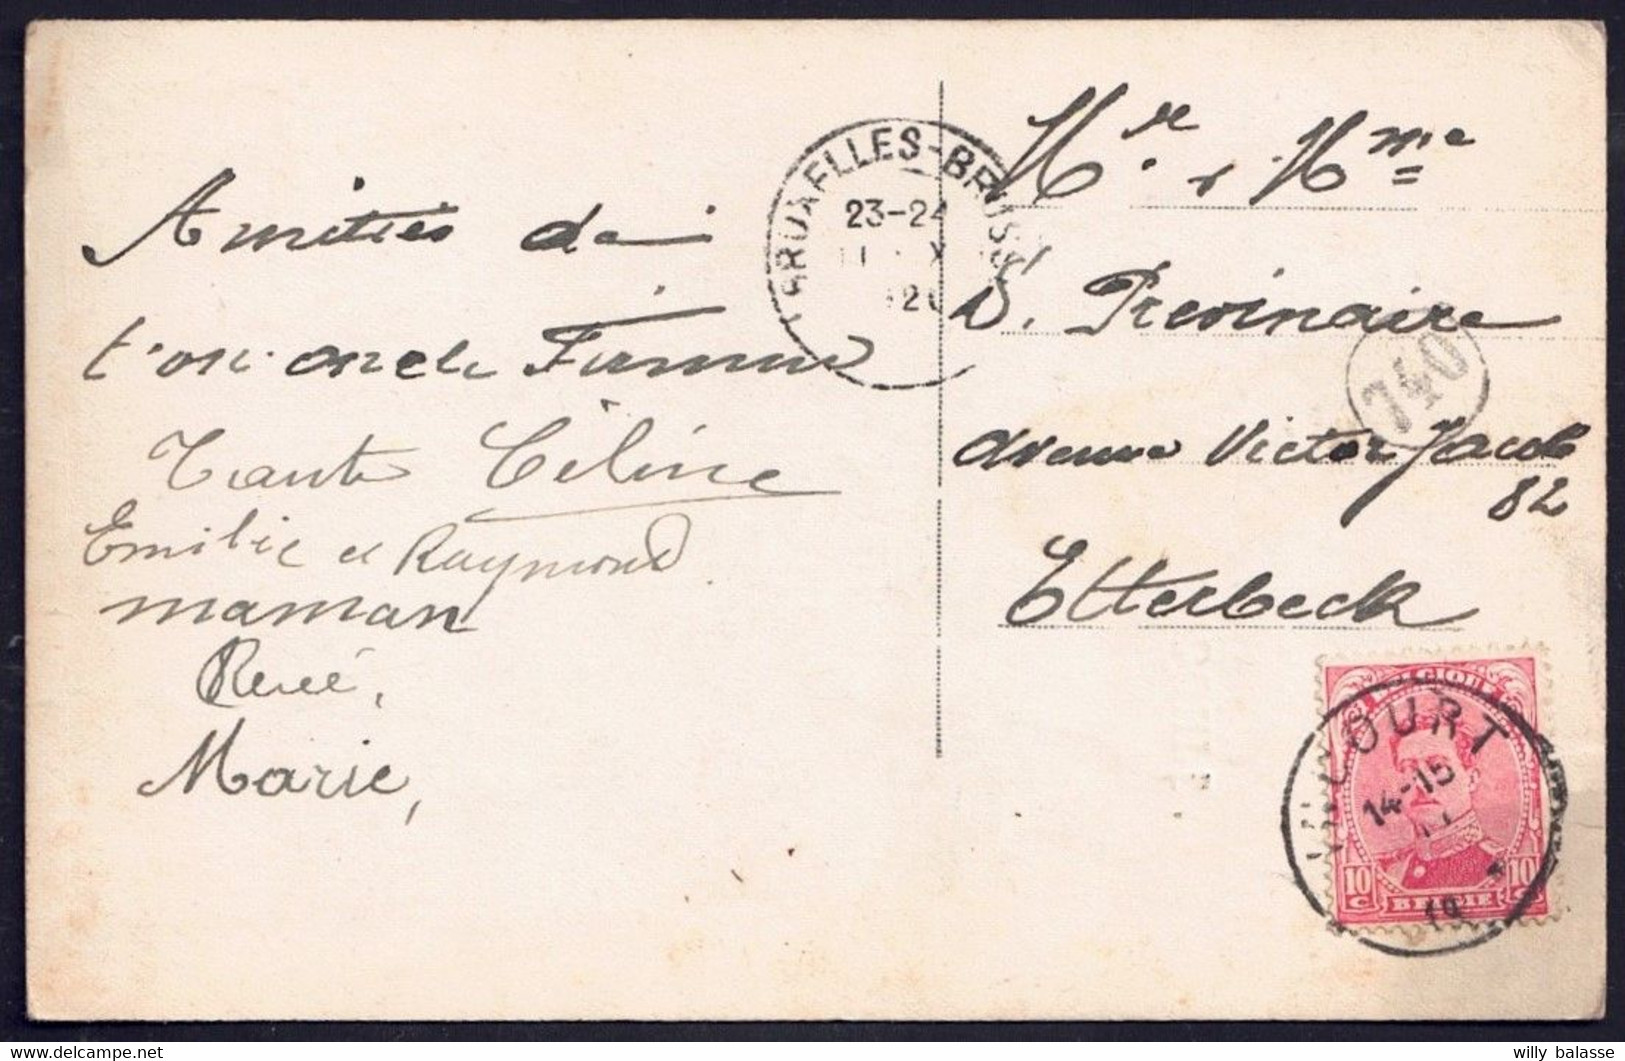 Amitiés de
t'on oncle Firmin
Tante Céline
Emilie et Raymond
maman
René,
Marie,
BRUXELLES-BRUSS
23-24
Mr & Mme
D. Previnaire
740
avenue Victor Jacob
82
Etterbeek
COURT
14-15
19
10 C BELGIE 10 C
willy balasse